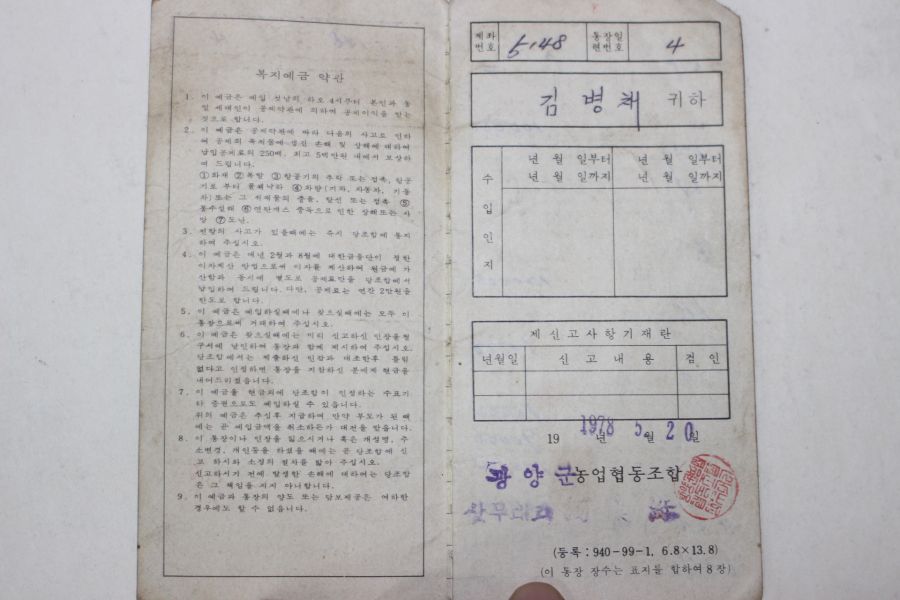 복지예금 약관
1. 이 예금은 예입 첫날의 하오 4시부터 본인과 동
일 세대인이 공제약관에 의하여 공제이익을 받는
것으로 합니다.
2. 이 예금은 공제약관에 따라 다음의 사고로 인하
여 공제의 목적물에 생긴 손해 및 상해에 대하여
납입공제료의 250배, 최고 5백만원 내에서 보상하
여 드립니다.
①화재 ②폭발 ③항공기의 추락 또는 접촉, 항공
기로 부터 물체낙하 ④차량(기차, 자동차, 기동
차) 또는 그 적재물의 충돌, 탈선 또는 접촉 ⑤
⑥연탄개스 중독으로 인한 상해또는 사
망 ⑦도난.
3. 전항의 사고가 있을때에는 즉시 당조합에 통지
하여 주십시오.
4. 이 예금은 매년 2월과 8월에 대한금융단이 정한
이자계산 방법으로써 이자를 계산하여 원금에 가
산함과 동시에 별도로 공제료만을 당조합에서
납입하여 드립니다. 다만, 공제료는 연간 2만원을
한도로 합니다.
5. 이 예금은 예입하실때에나 찾으실때에는 모두 이
통장으로써 거래하여 주십시오.
6. 이 예금은 찾으실때에는 미리 신고하신 인장을청
구서에 날인하여 통장과 함께 제시하여 주십시오.
당조합에서는 제출하신 인감과 대조한후 틀림
없다고 인정하면 통장을 지참하신 분에게 현금을
내어드리겠습니다.
7. 이 예금을 현금외에 당조합이 인정하는 수표기
타 증권으로도 예입하실 수 있습니다.
위의 예금은 추심후 지급하며 만약 부도가 된 때
에는 곧 예입금액을 취소하든가 대전을 받습니다.
8. 이 통장이나 인장을 잃으시거나 혹은 개성명, 주
소변경, 개인장을 하셨을 때에는 곧 당조합에 신
고 하시와 소정의 절차를 밟아 주십시오.
신고하시기 전에 발생한 손해에 대하여는 당조합
은 그 책임을 지지 아니합니다.
9. 이 예금과 통장의 양도 또는 담보제공은 여하한
경우에도 할 수 없습니다.
계좌번호 5-48 통장일련번호 4
김병채 귀하
수입인지
년 월 일부터 년 월 일부터
년 월 일까지 년 월 일까지
제신고사항기재란
년월일 신고내용 검인
1978년 5월 20일
광양군농업협동조합
(등록 : 940-99-1, 6.8×13.8)
(이 통장 장수는 표지를 합하여 8장)